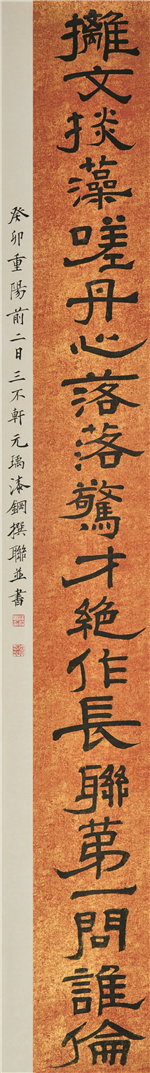 攡文掞藻嗟丹心落落驚才絕作長聯第一問誰倫
癸卯重陽前二日三不軒元瑀漆鋼撰聯並書